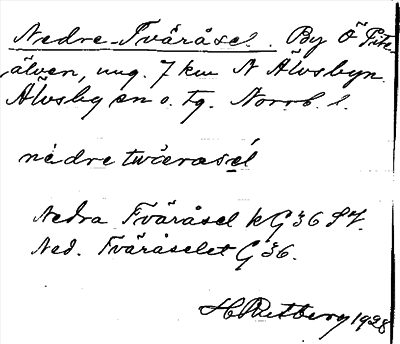 Nedre Tväråsel. By Ö Pite-
älven, ung. 7 km N Älvsbyn.
Älvsby sn o. tg. Norrb. l.
nedre tväråsel
Nedra Tväråsel kG36 SJ.
Ned. Tväråselet G36.
H Rietberg 1928